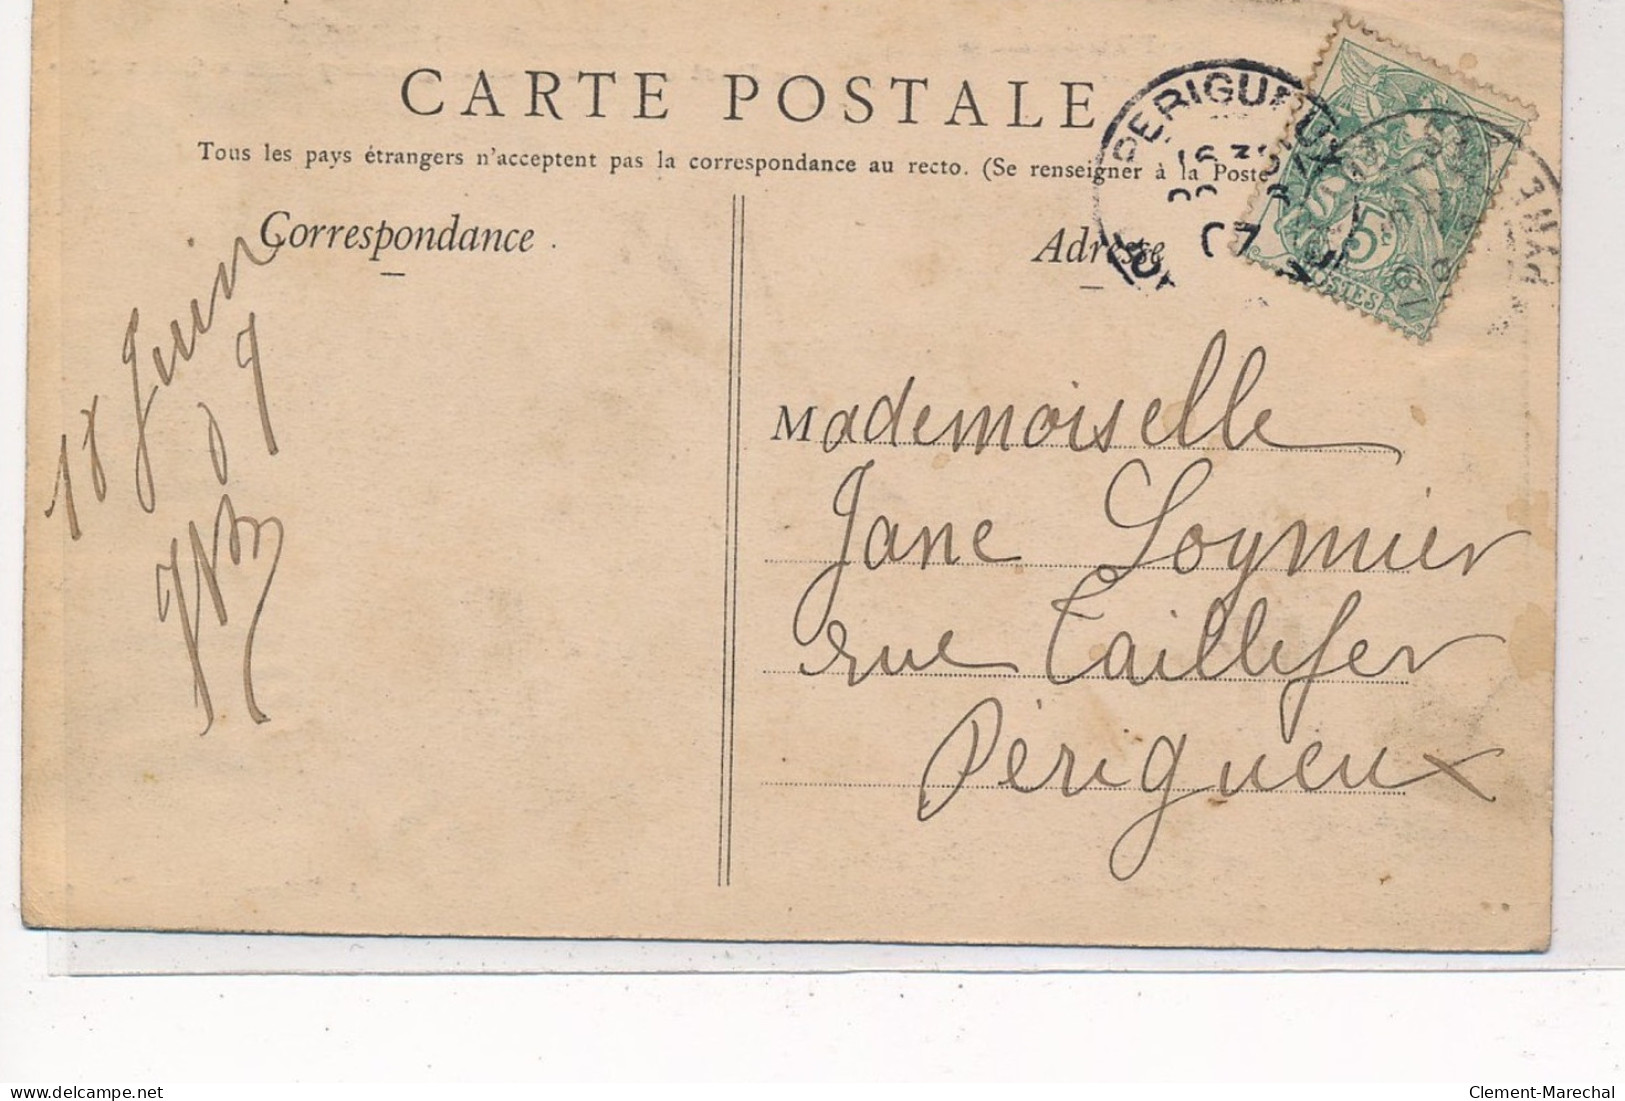 CARTE POSTALE
Tous les pays étrangers n'acceptent pas la correspondance au recto. (Se renseigner à la Poste
Correspondance
Adresse
PERIGUEUX
07
5c
POSTES
18 Juin
07
Mademoiselle
Jane Loymier
rue Taillefer
Périgueux
delcampe.net
Clement-Marechal